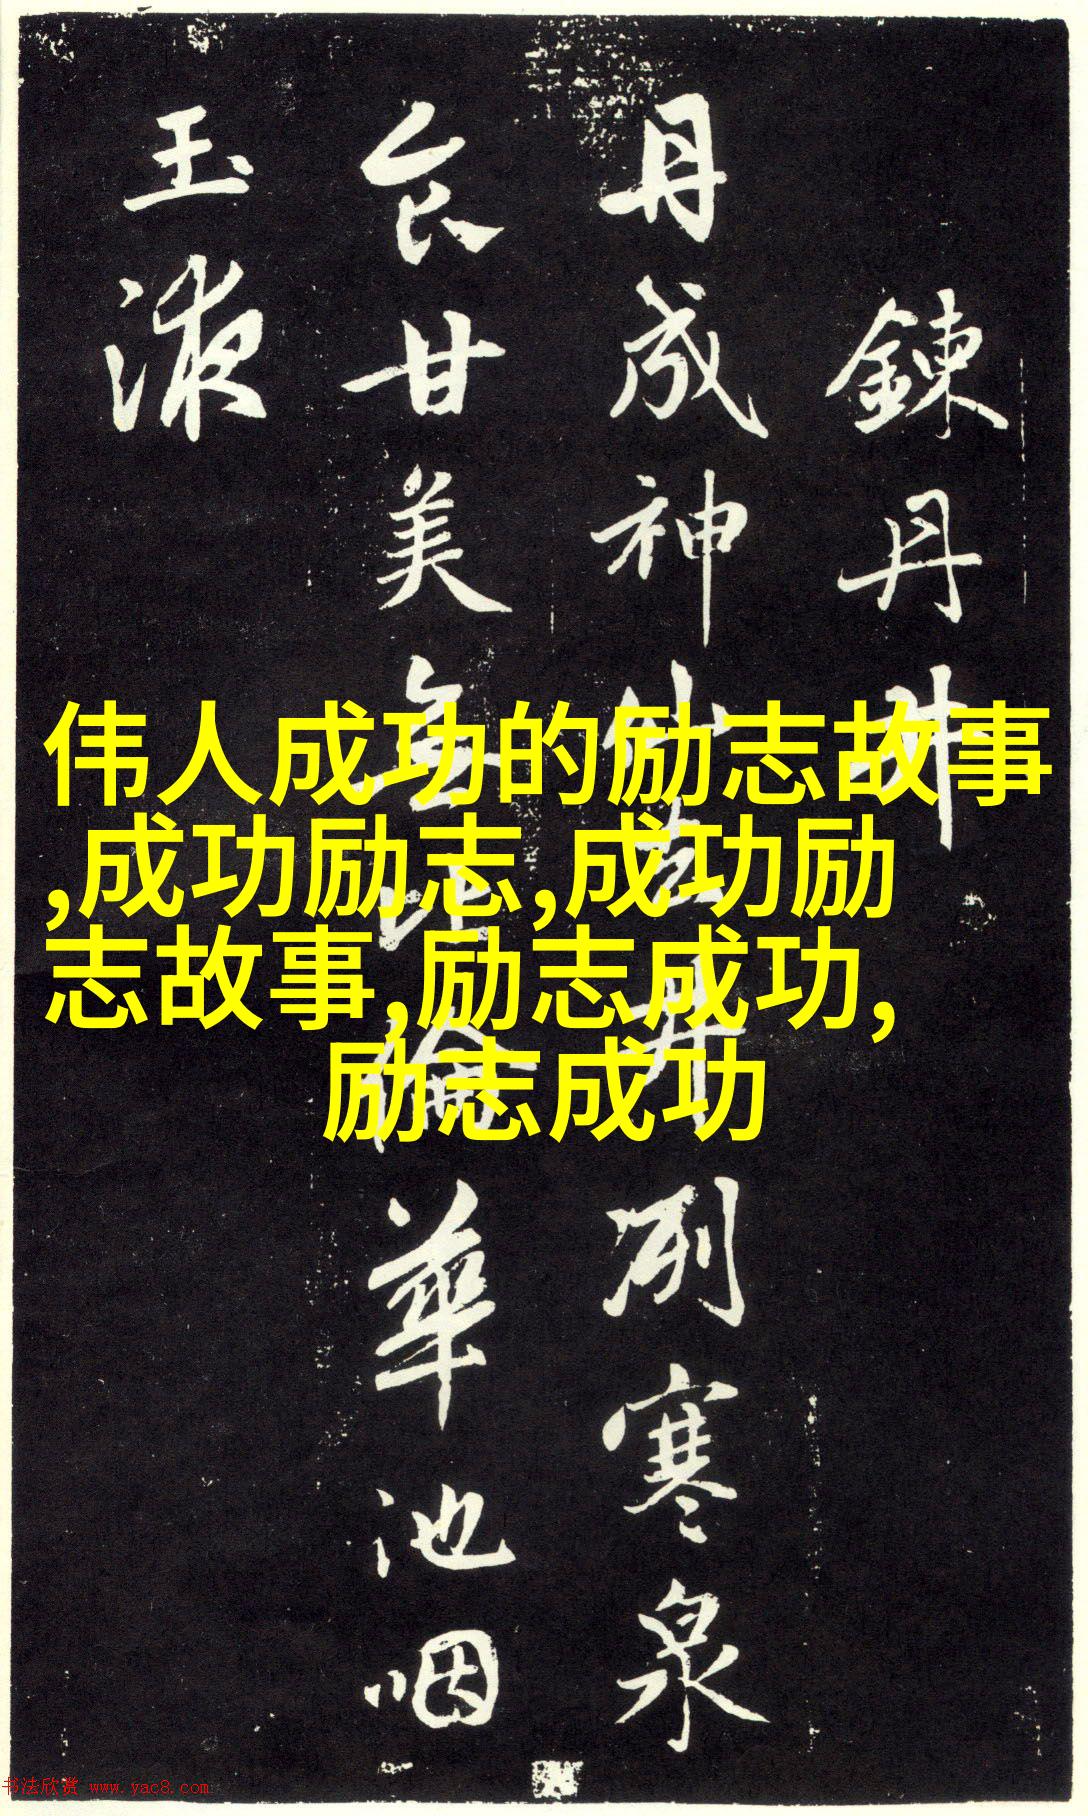 鍊丹井
丹成神仙去井冽寒泉
食甘美無比倫華池咽
玉液
伟人成功的励志故事
,成功励志,成功励
志故事,励志成功,
励志成功
书法欣赏 www.yac8.com